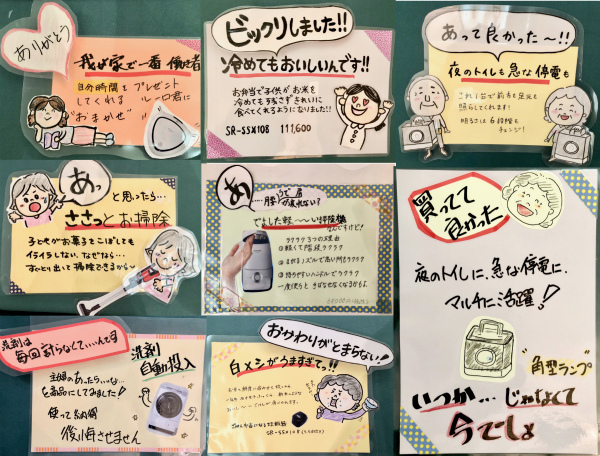 ありがとう
我が家で一番働き者
自分時間をプレゼント
してくれる ルーロ君に
"おまかせ"
ビックリしました!!
冷めてもおいしいんです!!
お弁当で子供がお米を
冷めても残さずきれいに
食べてくれるようになりました!!
SR-SSX108 111,600
あって良かった〜!!
夜のトイレも急な停電も
これ1台で前方と足元を
照らしてくれます!
明るさは6段階も
チェンジ!
あっ
と思ったら…
ささっとお掃除
子どもがお菓子をこぼしても
イライラしない、なぜなら…
すぐとり出して掃除できるから〜
ラクラク3つの理由
軽くて階段ラクラク
ラクラク
買ってて
良かった
夜のトイレに、急な停電に、
マルチに活躍!
"角型ランプ"
いつか… じゃなくて
今でしょ
洗剤は
毎回計らなくていいんです
洗剤
自動投入
主婦のあったらいいな…
を商品にしてみました!
使って納得
後悔させません
おかわりがとまらない!
白メシがうますぎてっ!!
SR-SSX108